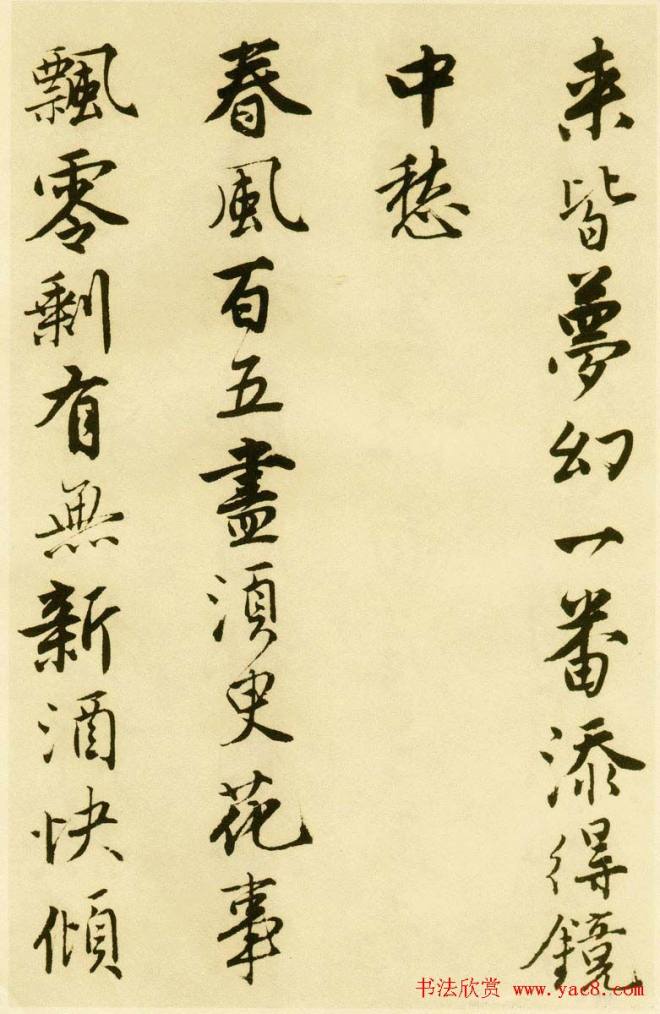 来皆夢幻一番添得鏡
中愁
春風百五盡須臾花事
飄零剩有無新酒快傾
书法欣赏 www.yac8.com